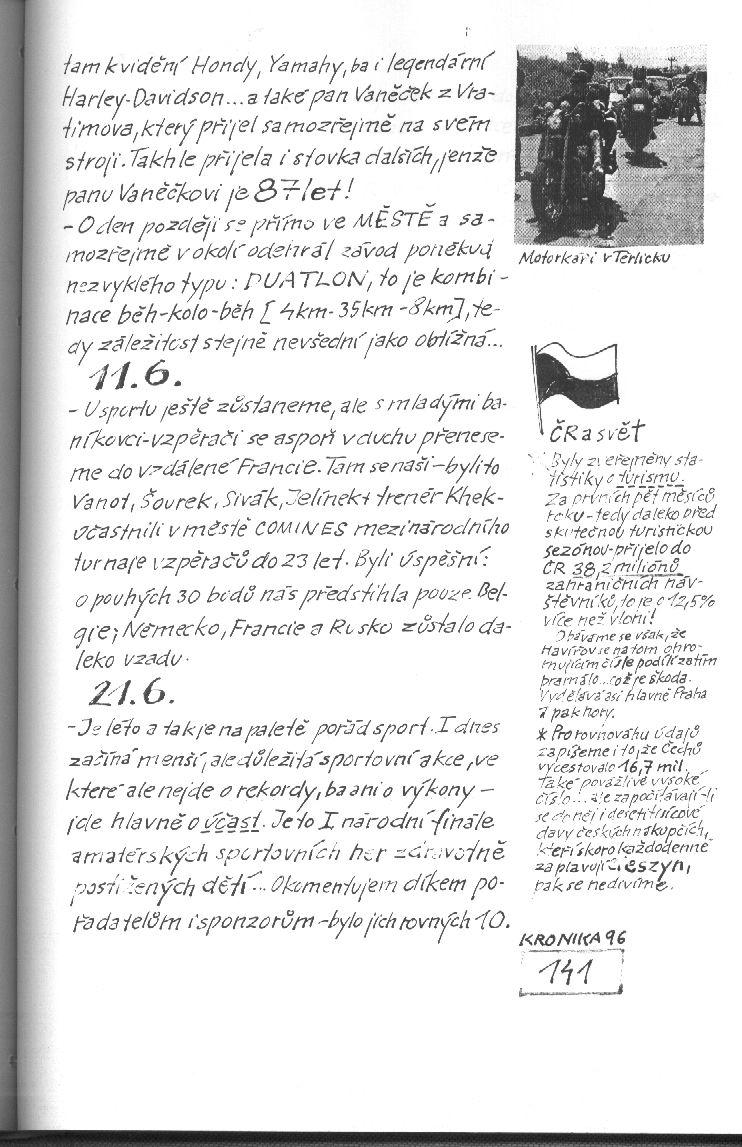 tam k vidění Hondy, Yamahy, ba i legendární
Harley-Davidson...a také pan Vaněček z Vra-
timova, který přijel samozřejmě na svém
stroji. Takhle přijela i stovka dalších, jenže
panu Vaněčkovi je 87 let!
- O den později se přímo ve MĚSTĚ a sa-
mozřejmě v okolí odehrál závod poněkud
nezvyklého typu: DUATLON, to je kombi-
nace běh-kolo-běh [4km-35km-8km], te-
dy záležitost stejně nevšední jako obtížná...
11.6.
- U sportu ještě zůstaneme, ale s mladými ba-
níkovci-vzpěrači se aspoň v duchu přenese-
me do vzdálené Francie. Tam se naši-byli to
Vanot, Šourek, Sivák, Jelínek+trenér Khek-
účastnili v městě COMINES mezinárodního
turnaje vzpěračů do 23 let. Byli úspěšní:
o pouhých 30 bodů nás předstihla pouze Bel-
gie; Německo, Francie a Rusko zůstalo da-
leko vzadu.
21.6.
- Je léto a tak je na paletě pořád sport. I dnes
začíná menší, ale důležitá sportovní akce, ve
které ale nejde o rekordy, ba ani o výkony -
jde hlavně o účast. Je to I. národní finále
amatérských sportovních her zdravotně
postižených dětí... Okomentujem díkem po-
řadatelům i sponzorům-bylo jich rovných 10.
Motorkáři v Těrlicku
ČR a svět
Byly zveřejněny sta-
tistiky o turismu.
Za prvních pět měsíců
roku-tedy daleko před
skutečnou turistickou
sezónou-přijelo do
ČR 38,2 miliónů
zahraničních náv-
štěvníků, to je o 12,5%
více než vloni!
Obáváme se však, že
Havířov se na tom ohro-
mujícím čísle podílí zatím
pramálo...což je škoda.
Vydělává asi hlavně Praha
a pak hory.
* Pro rovnováhu údajů
zapíšeme i to, že Čechů
vycestovalo 16,7 mil.
Také povážlivě vysoké
číslo...ale započítávají-li
se do něj i desetitisícové
davy českých nakupčích,
kteří skoro každodenně
zaplavují Cieszyn,
pak se nedivíme.
KRONIKA 96
141